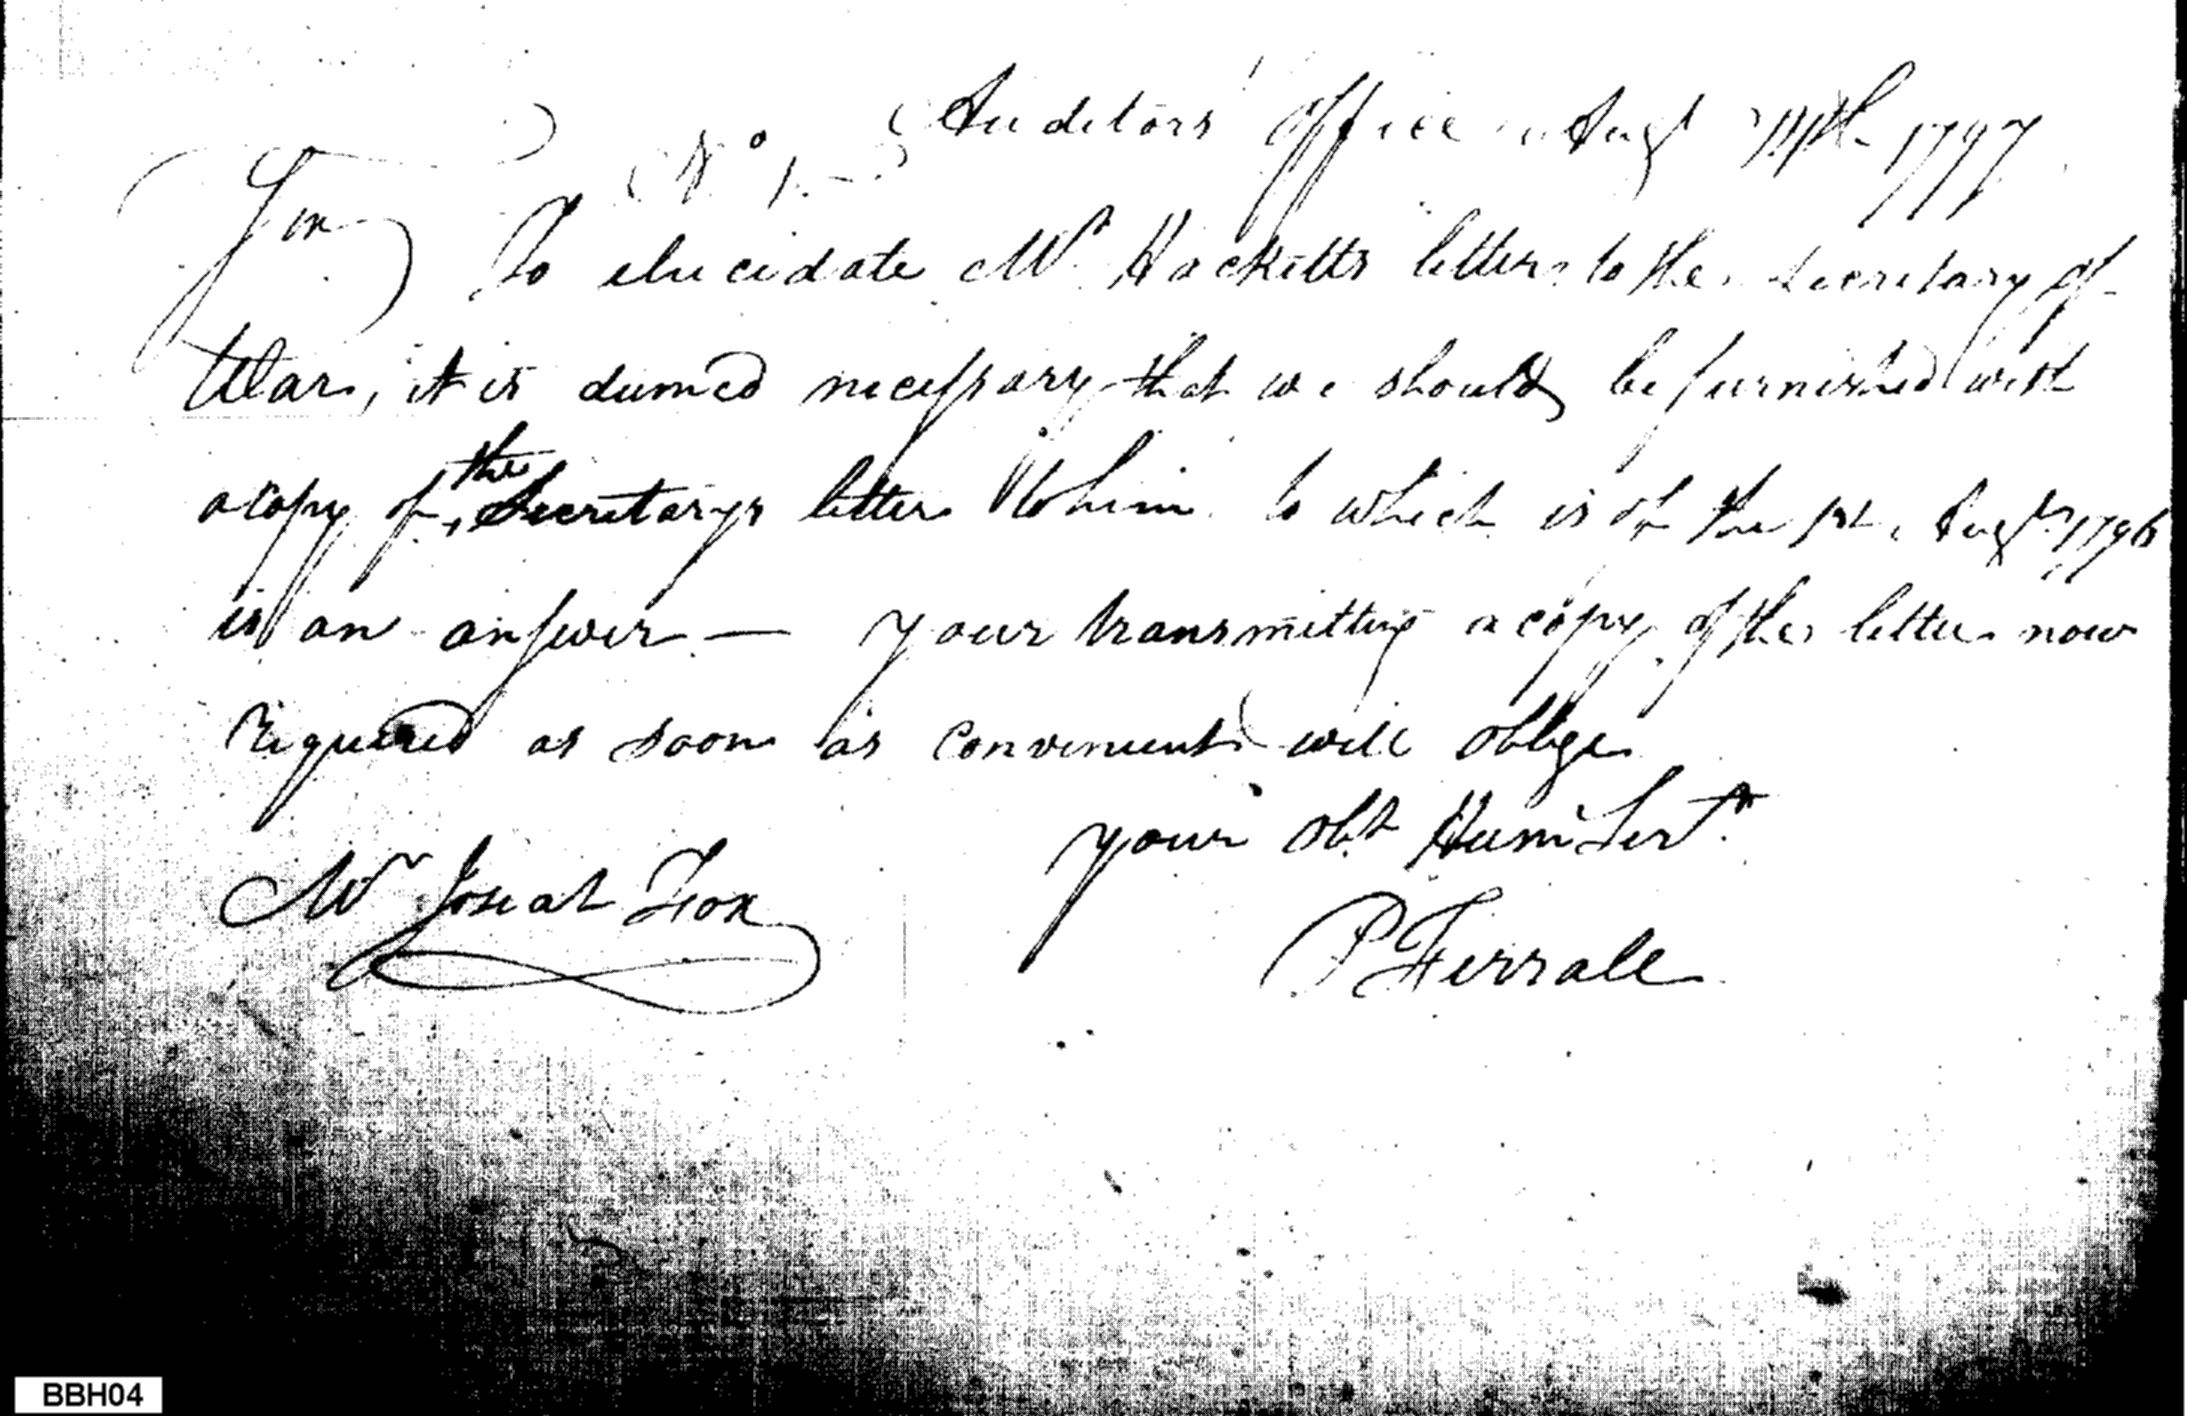 (No. 1.-) Auditors Office Augt 1797
Sir
To elucidate Mr. Hacketts letter to the Secretary of
War, it is deemed necessary that we should be furnished with
a copy of the Secretarys letter to him to which is of the 1st. Augt. 1796
is an answer — your transmitting a copy of the letter now
required as soon as convenient will oblige
your Obt Hum Servt.
Mr Josiah Fox
P Ferrall
BBH04